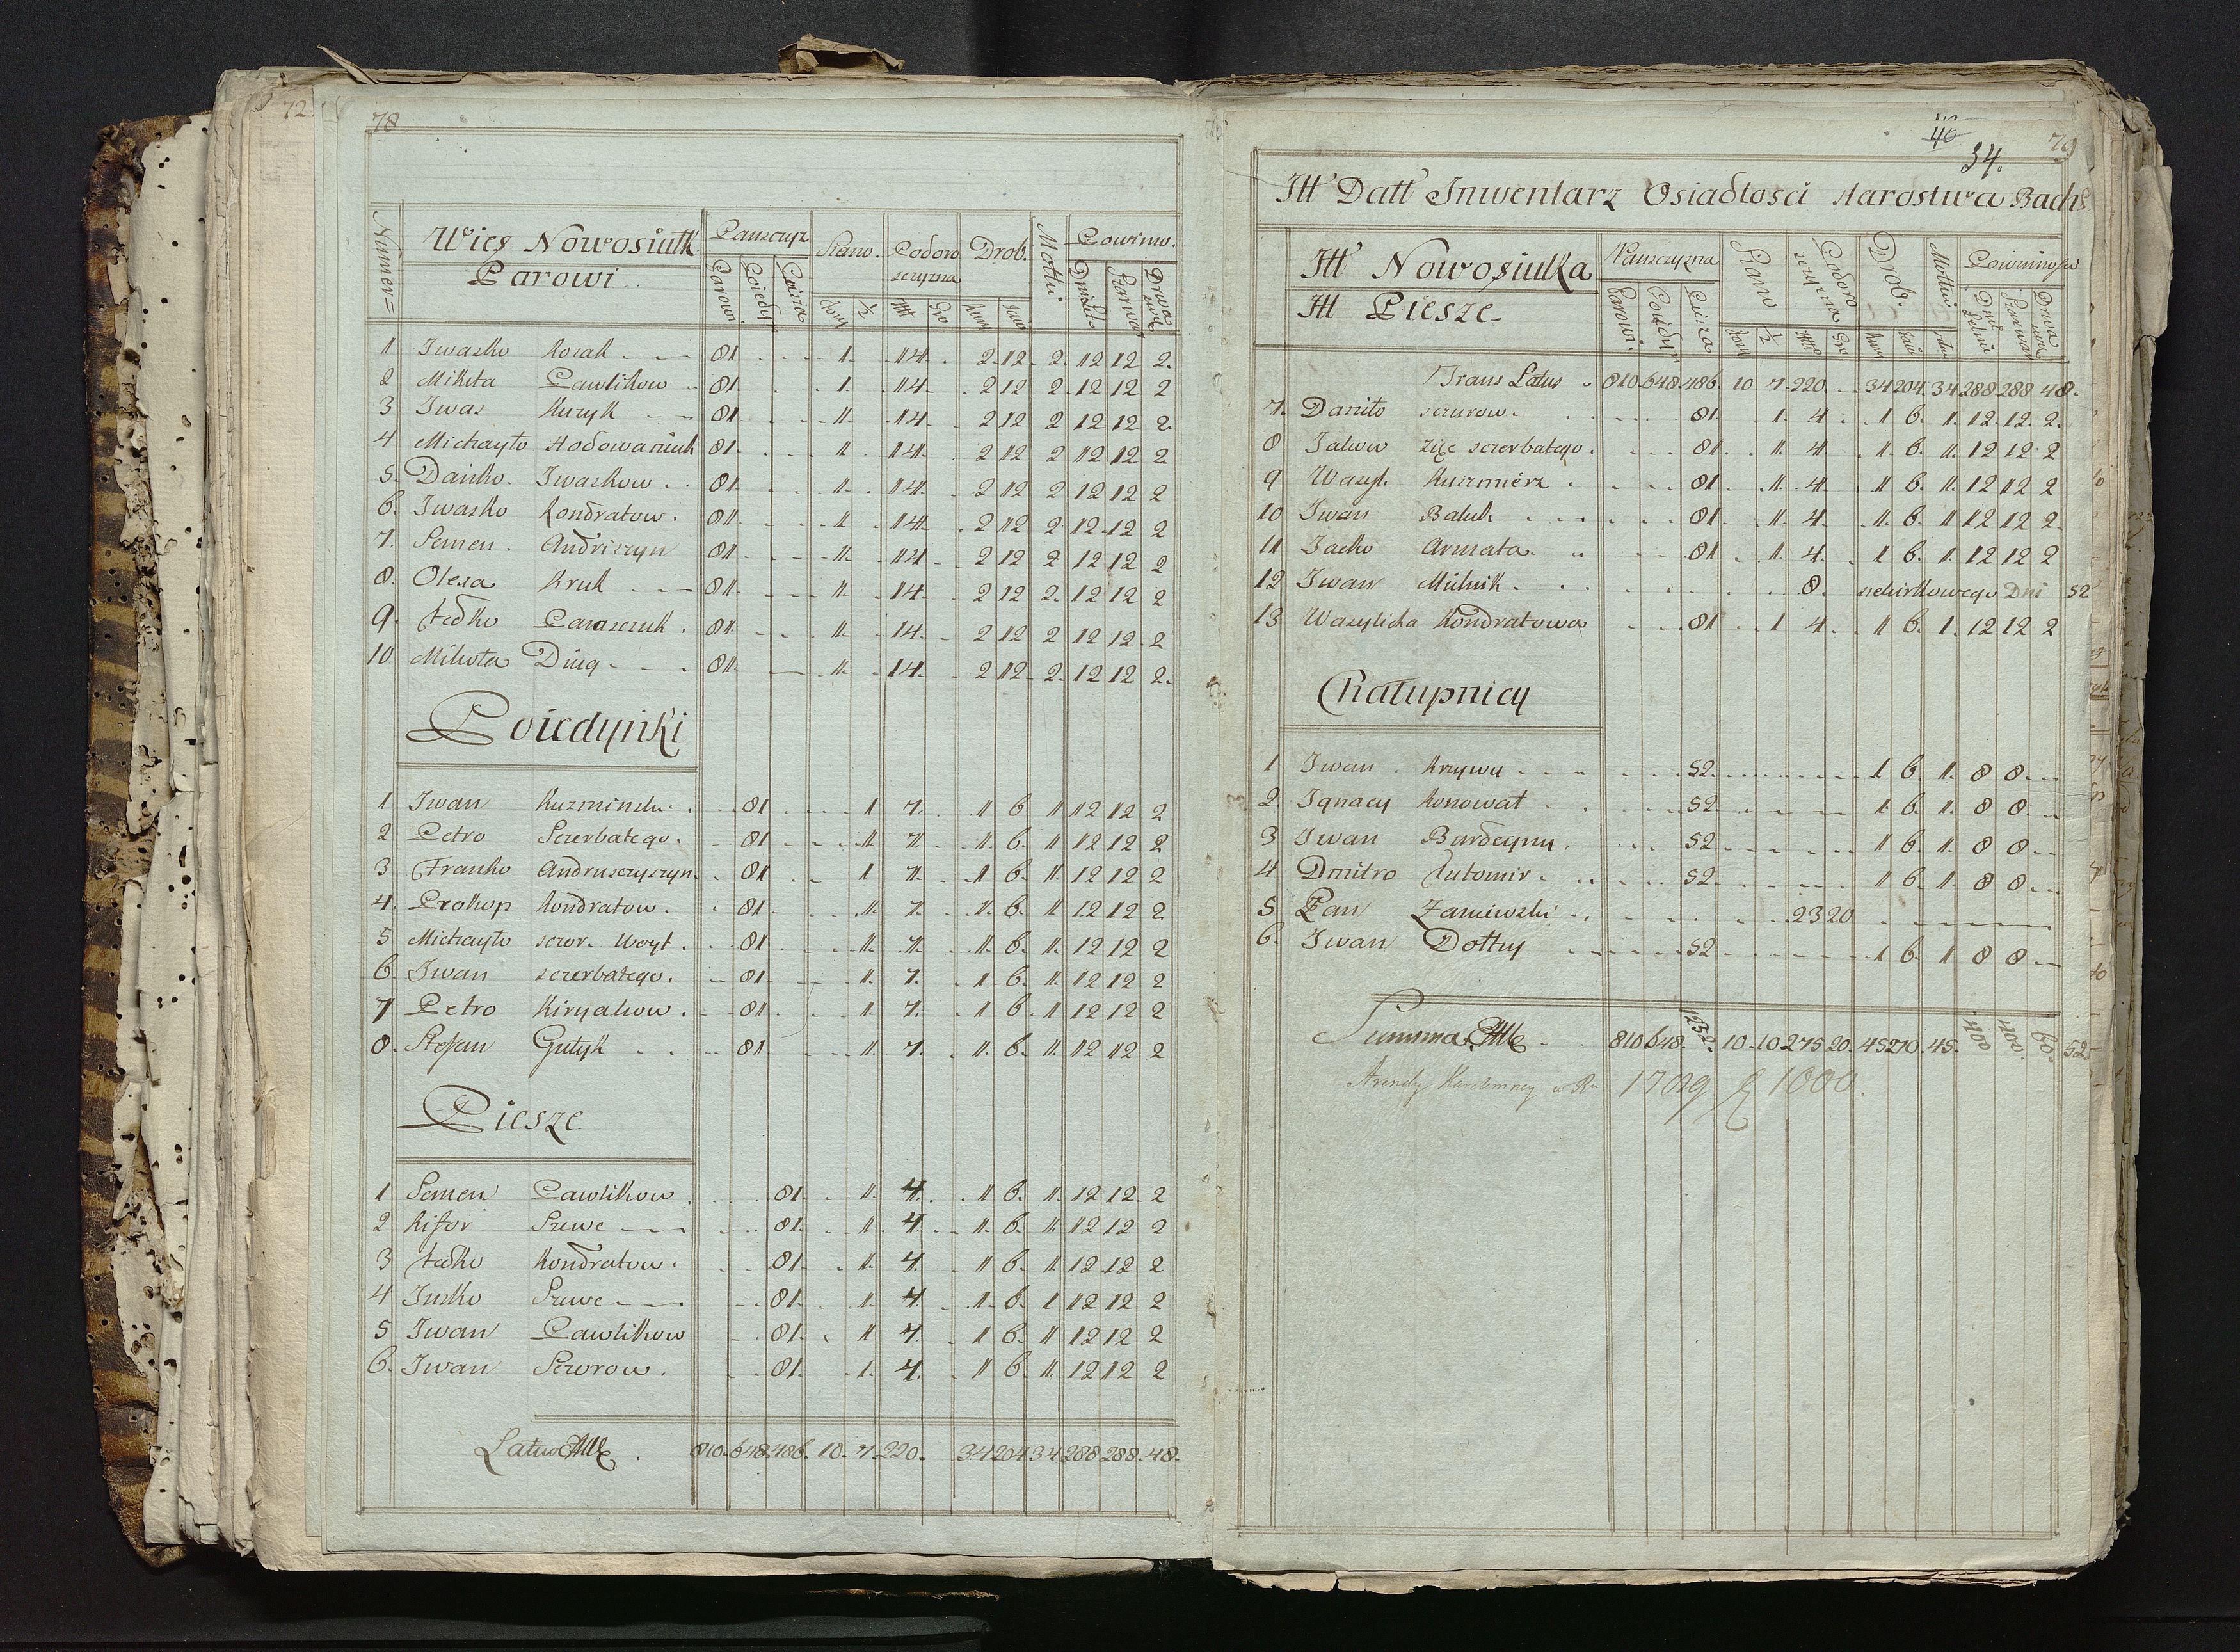 72
78
Numer=
Wies Nowosiułk
Parowi
Panszczyz
Stano.
Podoro
szczyzna
Drob.
Mottki
Powinno.
Parowi
Poiedyn
Piesza
1/2
1 Iwasko Kozak 81. 1. 14. 2 12 2. 12 12 2.
2 Mikita Pawlikow 81. 1. 14. 2 12 2 12 12 2
3 Iwas Kuzyk 81. 1. 14. 2 12 2 12 12 2.
4 Michayło Hodowaniuk 81. 1. 14. 2 12 2 12 12 2
5. Daisko. Iwaskow. 81. 1. 14. 2 12 2 12 12 2
6. Iwasko Kondratow. 81. 1. 14. 2 12 2 12 12 2
7. Semen. Andriszyn 81. 1. 14. 2 12 2 12 12 2
8. Olexa Kruk 81. 1. 14. 2 12 2. 12 12 2
9. Fedko Parasczuk. 81. 1. 14. 2 12 2 12 12 2
10 Mikita 81. 1. 14. 2 12 2. 12 12 2.
Poiedynki
1. Iwan Kuzminsk. 81. 1 7. 1 6 1 12 12 2
2 Petro Szczerbatego. 81. 1. 7. 1. 6. 1 12 12 2
3 Franko Andruszczyszyn. 81. 1 7. 1 6. 1. 12 12 2
4. Prokop Kondratow. 81. 1. 7. 1. 6. 1. 12 12 2
5 Michayło szor. Woyt. 81. 1. 7. 1. 6. 1. 12 12 2
6. Iwan szczerbatego. 81. 1. 7. 1 6. 1. 12 12 2
7 Petro Kiryakow. 81. 1. 7. 1 6. 1 12 12 2
8. Stefan Gutyk 81. 1. 7. 1. 6. 1. 12 12 2
Piesze
1 Semen Pawlikow 81. 1. 4. 1 6. 1. 12 12 2
2 Kifor Szwe 81. 1. 4. 1. 6. 1. 12 12 2
3 Fedko Kondratow. 81. 1. 4. 1 6. 1. 12 12 2
4 Iusko Szwe 81. 1. 4. 1. 6. 1 12 12 2
5 Iwan Pawlikow 81. 1 4. 1 6. 1 12 12 2
6. Iwan Szorow. 81. 1. 4. 1 6. 1. 12 12 2
Latus 810. 648. 486. 10. 7. 220. 34 204 34 288 288. 48.
40
34.
79
Itt Datt Inwentarz Osiadłosci Starostwa Bach
Itt Nowosiulka
Itt Piesze
Panszczyzna
Stano
Podoro
szczyzna
Drob.
Mottki
Powinnosc
Parowi.
Poiedyn
Piesza
1/2
Trans Latus 810. 648. 486. 10 7. 220. 34 204. 34 288 288 48.
7. Daniło szurow. 81. 1. 4. 1 6. 1. 12. 12. 2.
8 Jakow zięc szczerbatego. 81. 1. 4. 1. 6. 1. 12 12 2
9 Wasyl. Kuszmierz. 81. 1. 4. 1 6. 1. 12 12 2
10 Iwan Baluk 81. 1. 4. 1. 6. 1 12 12 2.
11 Jacko Armata. 81. 1. 4. 1 6. 1. 12 12 2
12 Iwan Milnik. 8. siekirkowego Dni 52
13 Wasylicha Kondratowa 81. 1 4. 1 6. 1. 12 12 2
Chałupnicy
1 Iwan Krzywy 52. 1 6. 1. 8 8
2. Ignacy Konował 52. 1. 6. 1. 8 8
3 Iwan Burdeyny. 52 1 6. 1. 8 8
4 Dmitro Lutomir. 52 1 6. 1. 8 8
5 Pan Zaniewski 23 20
6. Iwan Dołhy 52 1 6. 1 8 8
Summa 810 648. 1232. 10. 10 275 20. 45 270. 45. 400 400. 60. 52
Arendy Karczmney 1789 1000.